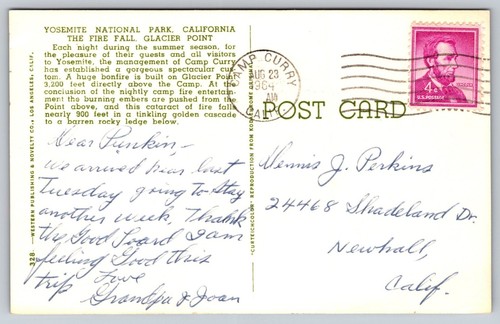 YOSEMITE NATIONAL PARK, CALIFORNIA
THE FIRE FALL, GLACIER POINT
Each night during the summer season, for
the pleasure of their guests and all visitors
to Yosemite, the management of Camp Curry
has established a gorgeous spectacular cus-
tom. A huge bonfire is built on Glacier Point
3,200 feet directly above the Camp. At the
conclusion of the nightly camp fire entertain-
ment the burning embers are pushed from the
Point above, and this cataract of fire falls
nearly 900 feet in a tinkling golden cascade
to a barren rocky ledge below.
Dear Punkin -
We arrived hear last
Tuesday going to stay
another week. Thank
the Good Loard I am
feeling Good this
trip Love
Grandpa & Joan
328 — WESTERN PUBLISHING & NOVELTY CO., LOS ANGELES, CALIF.
"CURTEICHCOLOR" REPRODUCTION FROM KODACHROME
CAMP CURRY
AUG 23
AM
1964
CALIF.
4¢
U.S. POSTAGE
POST CARD
Dennis J. Perkins
24468 Shadeland Dr.
Newhall,
Calif.